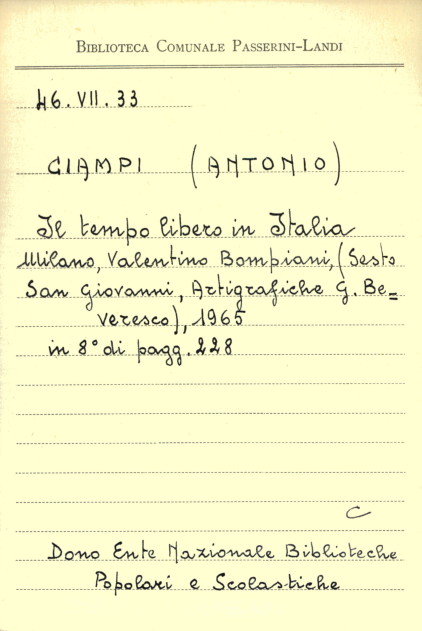 BIBLIOTECA COMUNALE PASSERINI-LANDI
46.VII.33
CIAMPI (ANTONIO)
Il tempo libero in Italia
Milano, Valentino Bompiani, (Sesto
San Giovanni, Artigrafiche G. Be=
veresco), 1965
in 8° di pagg. 228
C
Dono Ente Nazionale Biblioteche
Popolari e Scolastiche